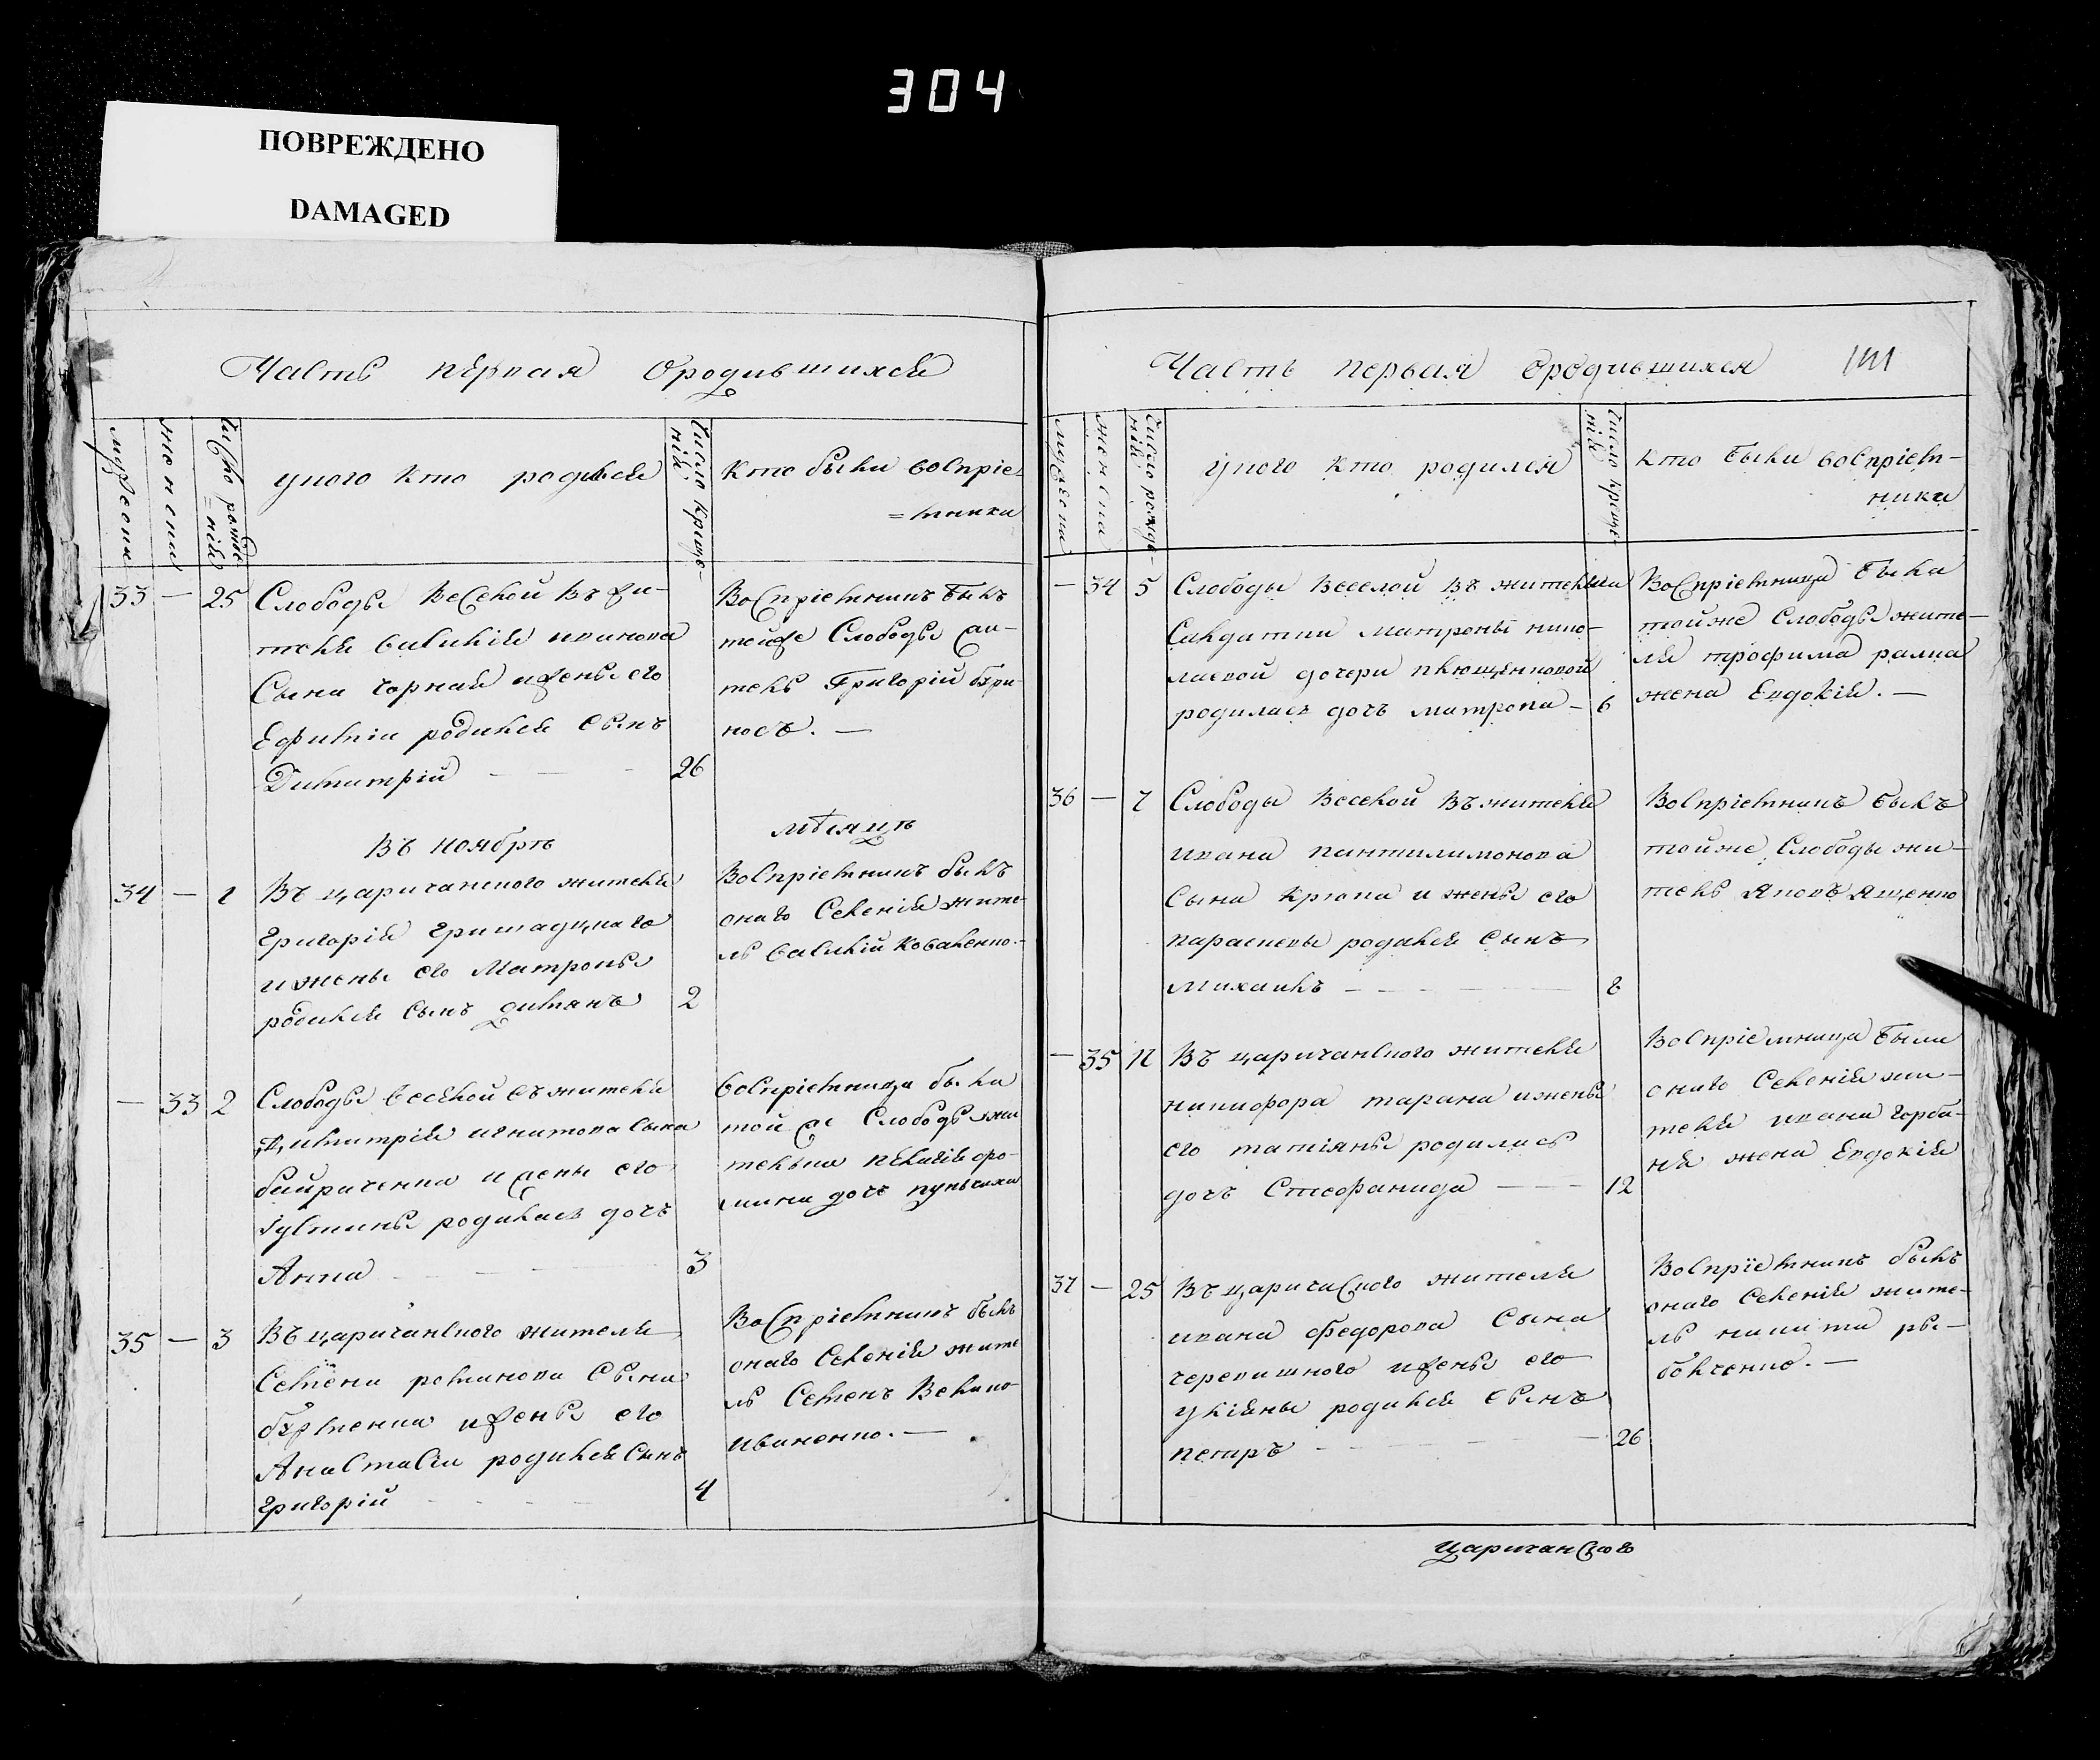 304
ПОВРЕЖДЕНО
DAMAGED
Часть первая ородившихся
мужеска
женска
Число рожде
=нія
у кого кто родился
Число креще-
нія
кто были воспріе=
=мники
33 — 25 Слободы Веселой въ жи-
теля василія иванова
Сына чорная и жены его
Ефиміи родился сынъ
Димитрій — — 26
Воспріемникъ былъ
тойже Слободы жи-
тель Григорій
носъ. —
Въ ноябрѣ
мѣсяцѣ
34 — 1 Въ царичанского жителя
григорія гришадцкаго
и жены его Матроны
родился сынъ дамянъ 2
Воспріемникъ былъ
онаго Селенія жите-
ль василій коваленко. —
— 33 2 Слободы веселой въ жителя
Димитрія игнатова сына
байраченка и жены его
іустины родилась дочь
Анна — — — 3
воспріемница была
той же Слободы жи
телька пелагія
дочь
35 — 3 Въ царичанского жителя
Семена романова Сына
и жены его
Анастасіи родился Сынъ
григорій — — — 4
Воспріемникъ былъ
онаго Селенія жите
ль Семенъ Велико
иваненко. —
Часть первая ородившихся
141
мужеска
женска
Число рожде-
нія
у кого кто родился
Число креще-
нія
кто были воспріем-
ники
— 34 5 Слободы Веселой въ жительки
Салдатки матроны нико-
лаевой дочери клющниковой
родилась дочь матрона — 6
Воспріемница была
тойже Слободы жите-
ля трофима
жена Евдокія. —
36 — 7 Слободы Веселой въ жителя
ивана пантилимонова
Сына крюка и жены его
параскевы родился сынъ
михаилъ — — — 8
Воспріемникъ былъ
тойже Слободы жи-
тель яковъ ященко
— 35 11 Въ царичанского жителя
никифора тарана и жены
его татіяны родилась
дочь Стефанида — — — 12
Воспріемница была
онаго Селенія жи-
теля ивана горба-
ня жена Евдокія
37 — 25 Въ царичанского жителя
ивана Федорова Сына
черевишного и жены его
ульяны родился сынъ
петръ — — — — 26
Воспріемникъ былъ
онаго Селенія жите-
ль никита ры-
балченко. —
Царичанского